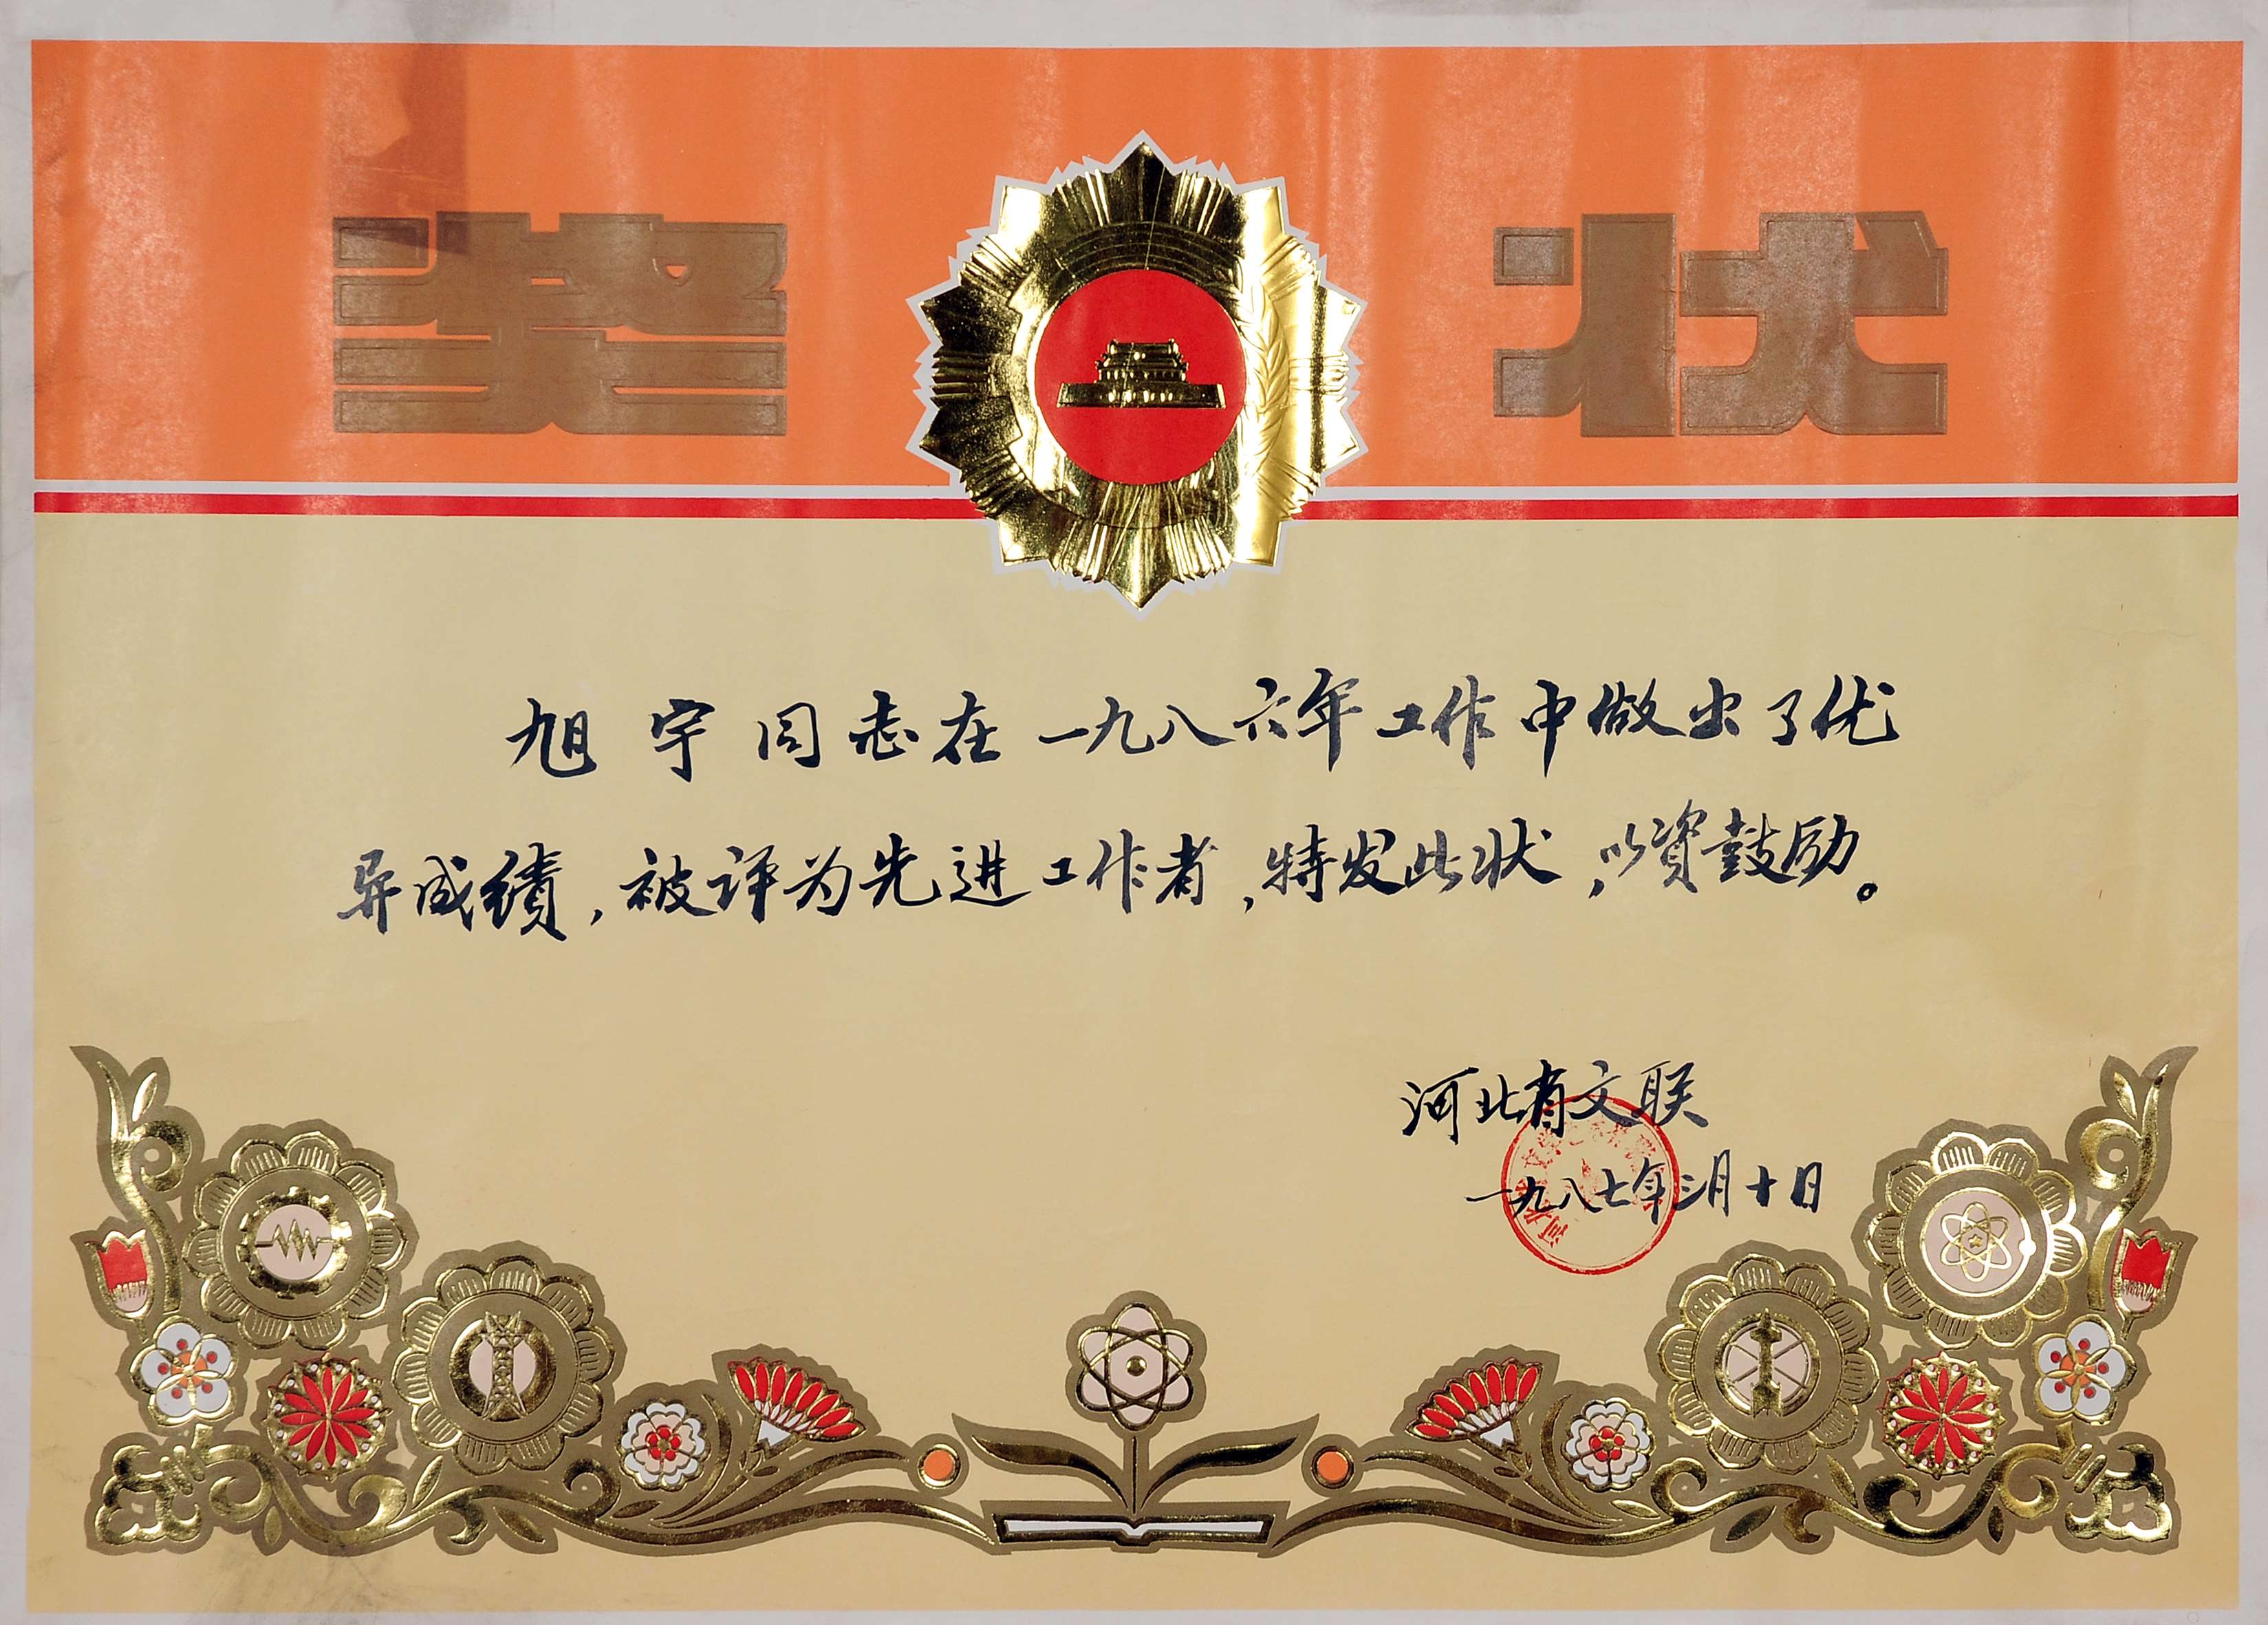 奖状
旭宇同志在一九八六年工作中做出了优
异成绩，被评为先进工作者，特发此状，以资鼓励。
河北省文联
一九八七年三月十日